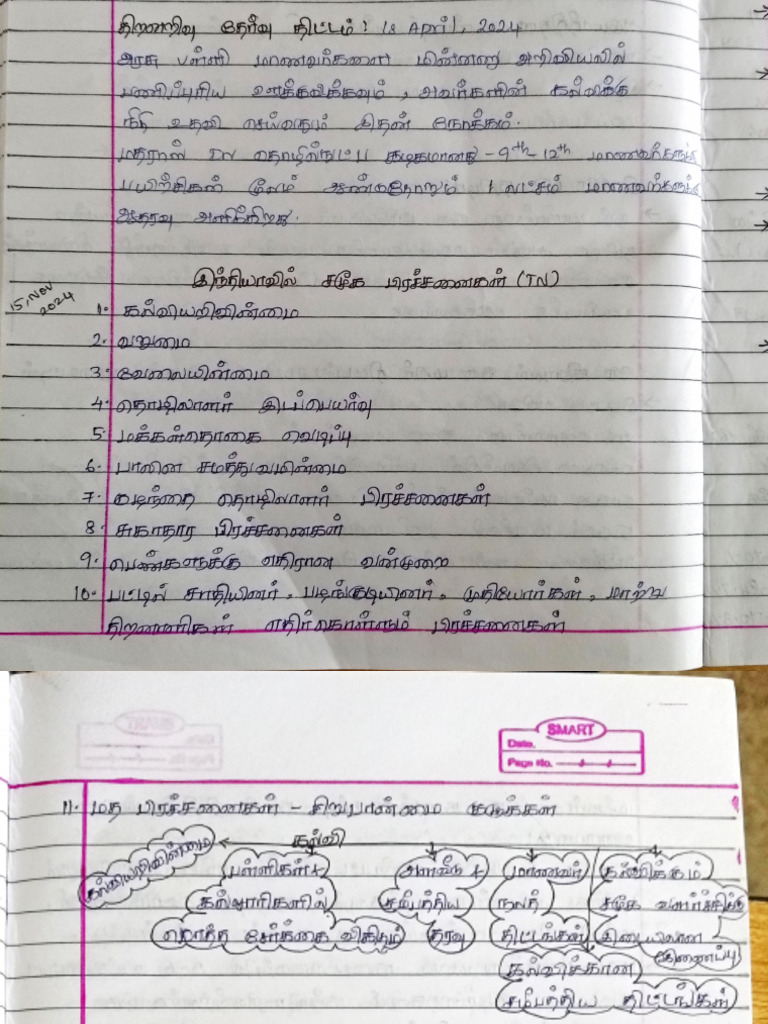 திறனறிவு தேர்வு திட்டம் : 18 April, 2024
அரசு பள்ளி மாணவர்களை மின்னணு அறிவியலில்
பணிப்புரிய ஊக்குவிக்கவும், அவர்களின் கல்விக்கு
நிதி உதவி செய்வதும் இதன் நோக்கம்.
மதராஸ் தொழில்நுட்ப கழகமானது - 9th-12th மாணவர்களுக்கு
பயிற்சிகள் மூலம் ஆண்டுதோறும் 1 லட்சம் மாணவர்களுக்கு
ஆதரவு அளிக்கிறது.
15, NOV 2024
இந்தியாவில் சமூக பிரச்சனைகள் (TN)
1. கல்வியறிவின்மை
2. வறுமை
3. வேலையின்மை
4. தொழிலாளர் இடப்பெயர்வு
5. மக்கள்தொகை வெடிப்பு
6. பாலின சமத்துவமின்மை
7. குழந்தை தொழிலாளர் பிரச்சனைகள்
8. சுகாதார பிரச்சனைகள்
9. பெண்களுக்கு எதிரான வன்முறை
10. பட்டில் சாதியினர், பழங்குடியினர், முதியோர்கள், மாற்று
திறனாளிகள் எதிர்கொள்ளும் பிரச்சனைகள்
SMART
Date.
Page No.
11. மத பிரச்சனைகள் - சிறுபான்மை குழுக்கள்
கல்வி
கல்வியறிவின்மை
பள்ளிகள் +
கல்லூரிகளில்
மொத்த சேர்க்கை விகிதம்
அளவீடு +
சம்பந்திய
தரவு
மாணவர்
நலத்
திட்டங்கள்
கல்விக்கும்
சமூக வளர்ச்சிக்கு
இடையிலான
இணைப்பு
கல்விக்கான
சம்பந்திய திட்டங்கள்